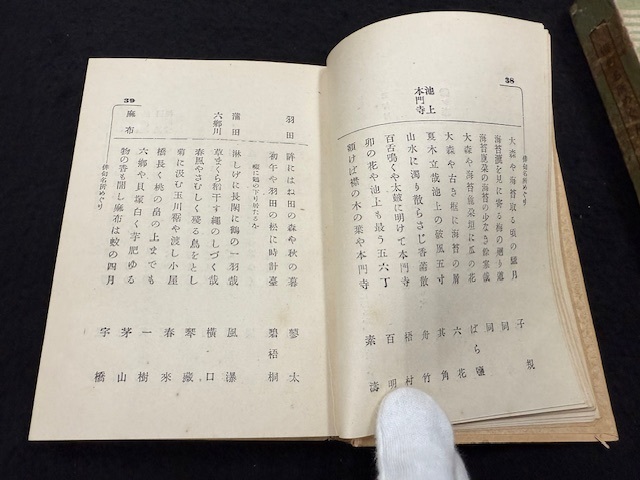 38
俳句名所めぐり
大森や海苔取る頃の朧月 子規
海苔簀を見に寄る海の廻り哉 同
海苔麁朶の海苔の少なき餘寒哉 同
大森や海苔麁朶垣に瓜の花 ばら鹽
大森や古き垣に海苔の屑 六花
池上
本門寺
眞木立哉池上の破風五寸 其角
山水に濁り散らさじ菖蒲 舟竹
百舌鳴くや太皷に明けて本門寺 梧村
卯の花や池上も最う五六丁 百明
額けば襟の木の葉や本門寺 素濤
39
俳句名所めぐり
羽田
跡にはね田の森や秋の暮 蓼太
初午や羽田の松に時計臺 碧梧桐
蒲田
淋しげに長閑に鶴の一羽哉 風瀑
六鄕川
草まくら稻干す繩のしづく哉 橫口
春風やさむしく殘る島をとし 琴藏
菊に汲む玉川裾や渡し小屋 春來
橋長く桃の畠の上までも 一樹
六鄕や貝塚白く芋肥ゆる 茅山
麻布
物の香も閙し麻布は蚊の四月 宇橋